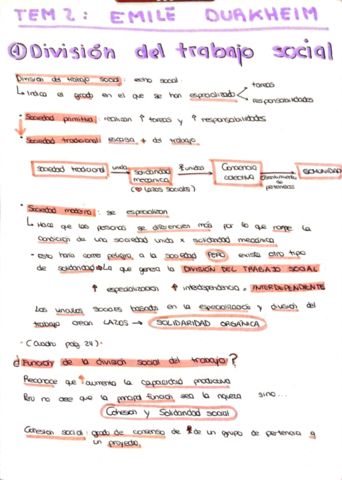 TEM 2: EMILE DURKHEIM
① División del trabajo social
División del trabajo social: echo social
↳ Indica el grado en el que se han especializado < tareas
responsabilidades
• Sociedad primitiva: realizan ↑ tareas y ↑ responsabilidades
• Sociedad tradicional escasa ÷ del trabajo
sociedad tradicional unida → solidaridad mecánica → Conciencia colectiva → COMUNIDAD
(↑ lazos sociales)
sentimiento de pertenencia
• Sociedad moderna: se especializan
↳ Hace que las personas se diferencien más por lo que rompe la
condición de una sociedad unida x solidaridad mecánica
• esto haría correr peligro a la sociedad PERO existe otro tipo
de solidaridad → La que genera la DIVISIÓN DEL TRABAJO SOCIAL
↑ especialización ↑ interdependencia = INTERDEPENDIENTE
Los vínculos sociales basados en la especialización y división del
trabajo crean LAZOS → SOLIDARIDAD ORGÁNICA
- (Cuadro pág 24) -
¿Función de la división social del trabajo?
Reconoce que ↑ aumenta la capacidad productiva
Pero no cree que la principal función sea la riqueza sino...
Cohesión y Solidaridad social
Cohesión social: grado de consenso de de un grupo de pertenencia a
un proyecto.